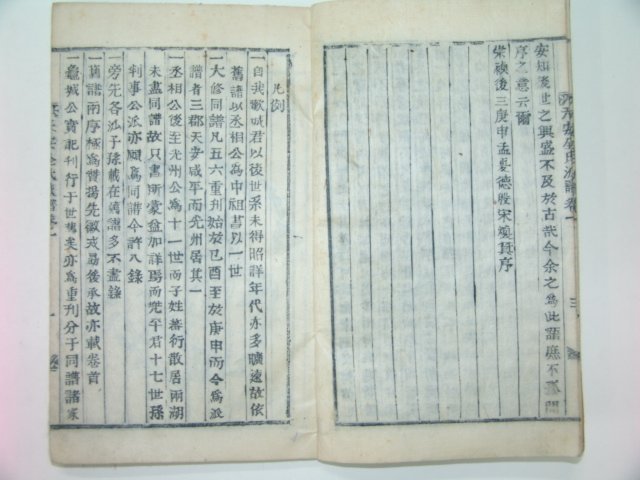 安知後世之興盛不及於古哉今余之爲此譜庶不孤闇
序之意云爾
崇禎後三庚申孟夏德殷宋煥箕序
凡例
一自我歙城君以後世系未得昭詳年代亦多曠遠故依
舊譜以丞相公爲中祖書以一世
一大修同譜凡五六重刊始於己酉至於庚申而今爲派
譜者三郡天安咸平而光州居其一
一丞相公後至光州公爲十一世而子姓蕃衍散居兩湖
未盡同譜故只書所蒙益加詳焉而光平君十七世孫
判事公派亦願爲同譜今許入錄
旁先各派子孫載在舊譜多不盡錄
一舊譜兩序極爲贊揚先徽或勗後承故亦載卷首
一鰲城公實記刊行于世舊矣亦爲重刊分于同譜諸家